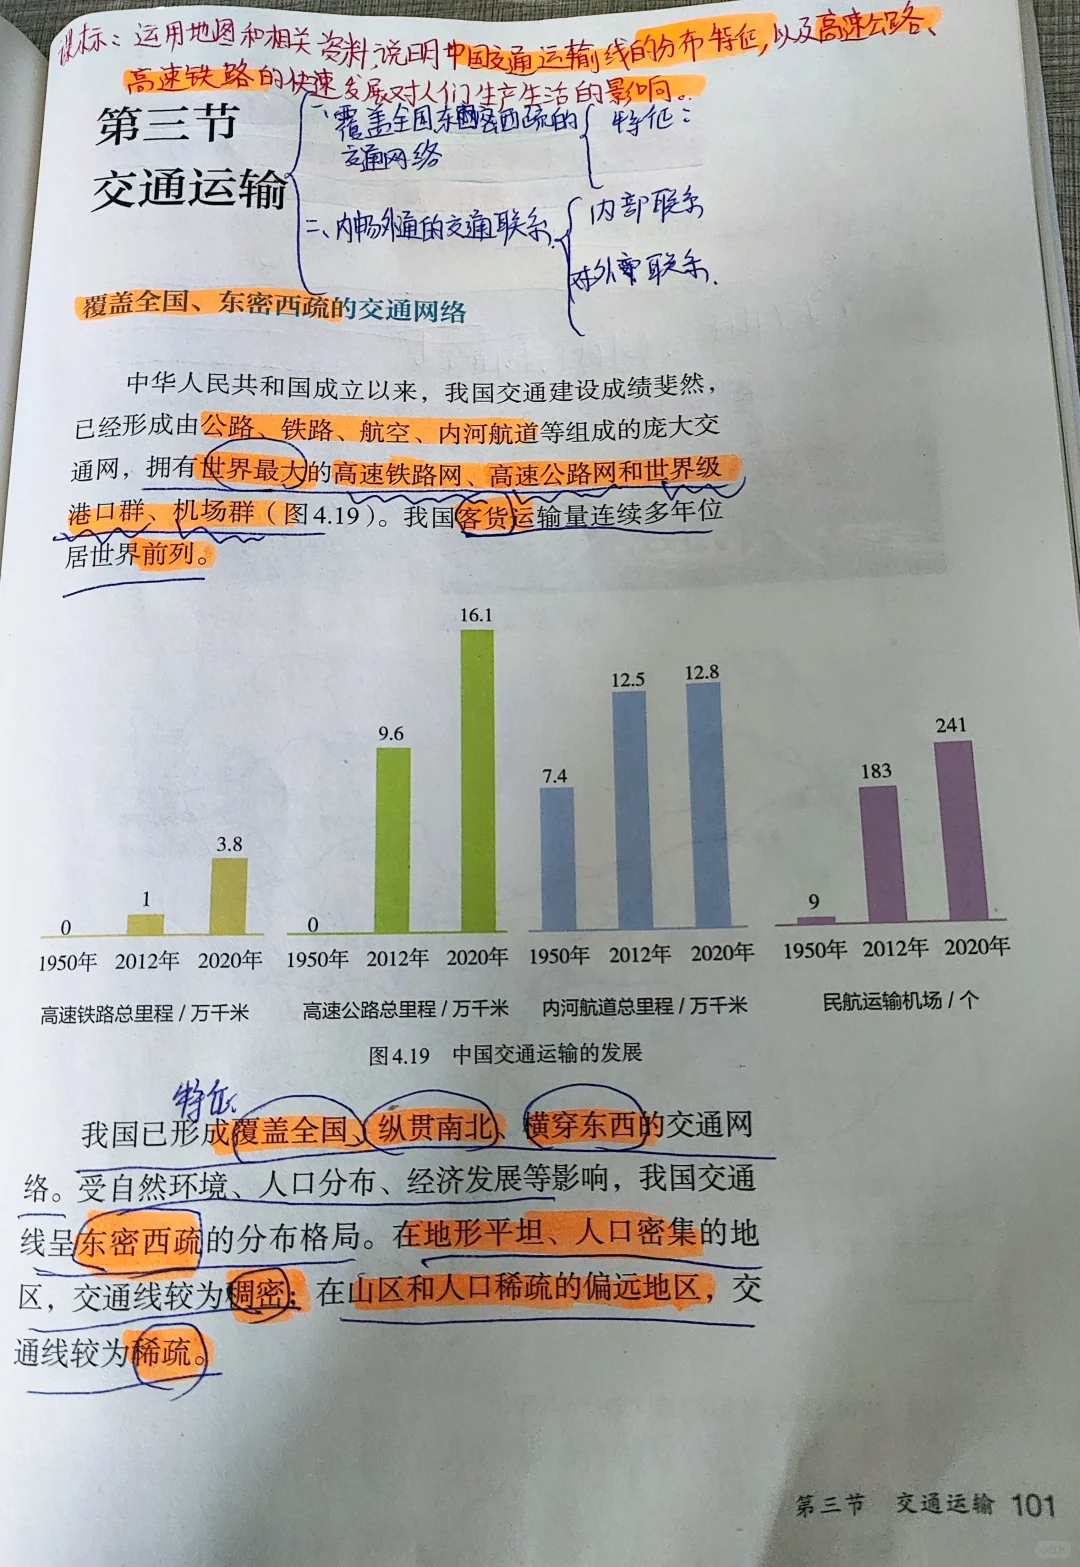 课标：运用地图和相关资料,说明中国交通运输线的分布特征,以及高速公路、
高速铁路的快速发展对人们生产生活的影响。
第三节
交通运输
一、覆盖全国东密西疏的
交通网络
特征：
二、内畅外通的交通联系
内部联系
对外联系.
覆盖全国、东密西疏的交通网络
中华人民共和国成立以来，我国交通建设成绩斐然，
已经形成由公路、铁路、航空、内河航道等组成的庞大交
通网，拥有世界最大的高速铁路网、高速公路网和世界级
港口群、机场群（图4.19）。我国客货运输量连续多年位
居世界前列。
0 1 3.8
1950年 2012年 2020年
高速铁路总里程 / 万千米
0 9.6 16.1
1950年 2012年 2020年
高速公路总里程 / 万千米
7.4 12.5 12.8
1950年 2012年 2020年
内河航道总里程 / 万千米
9 183 241
1950年 2012年 2020年
民航运输机场 / 个
图4.19 中国交通运输的发展
特征
我国已形成覆盖全国、纵贯南北、横穿东西的交通网
络。受自然环境、人口分布、经济发展等影响，我国交通
线呈东密西疏的分布格局。在地形平坦、人口密集的地
区，交通线较为稠密；在山区和人口稀疏的偏远地区，交
通线较为稀疏。
第三节 交通运输 101